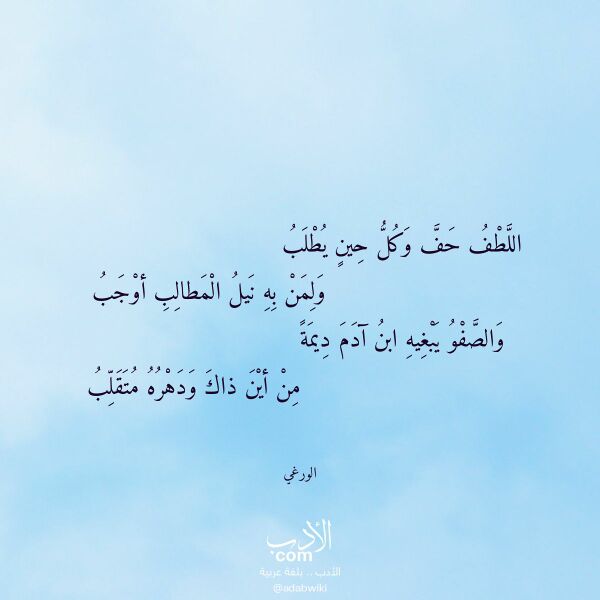 اللَّطْفُ حَفَّ وَكُلُّ حِينٍ يُطْلَبُ
وَلِمَنْ بِهِ نَيلُ الْمَطالِبِ أوْجَبُ
وَالصَّفْوُ يَبْغِيهِ ابنُ آدَمَ دِيمَةً
مِنْ أيْنَ ذاكَ وَدَهْرُهُ مُتَقَلِّبُ
الورغي
الأدب
com
الأدب .. بلغة عربية
@adabwiki